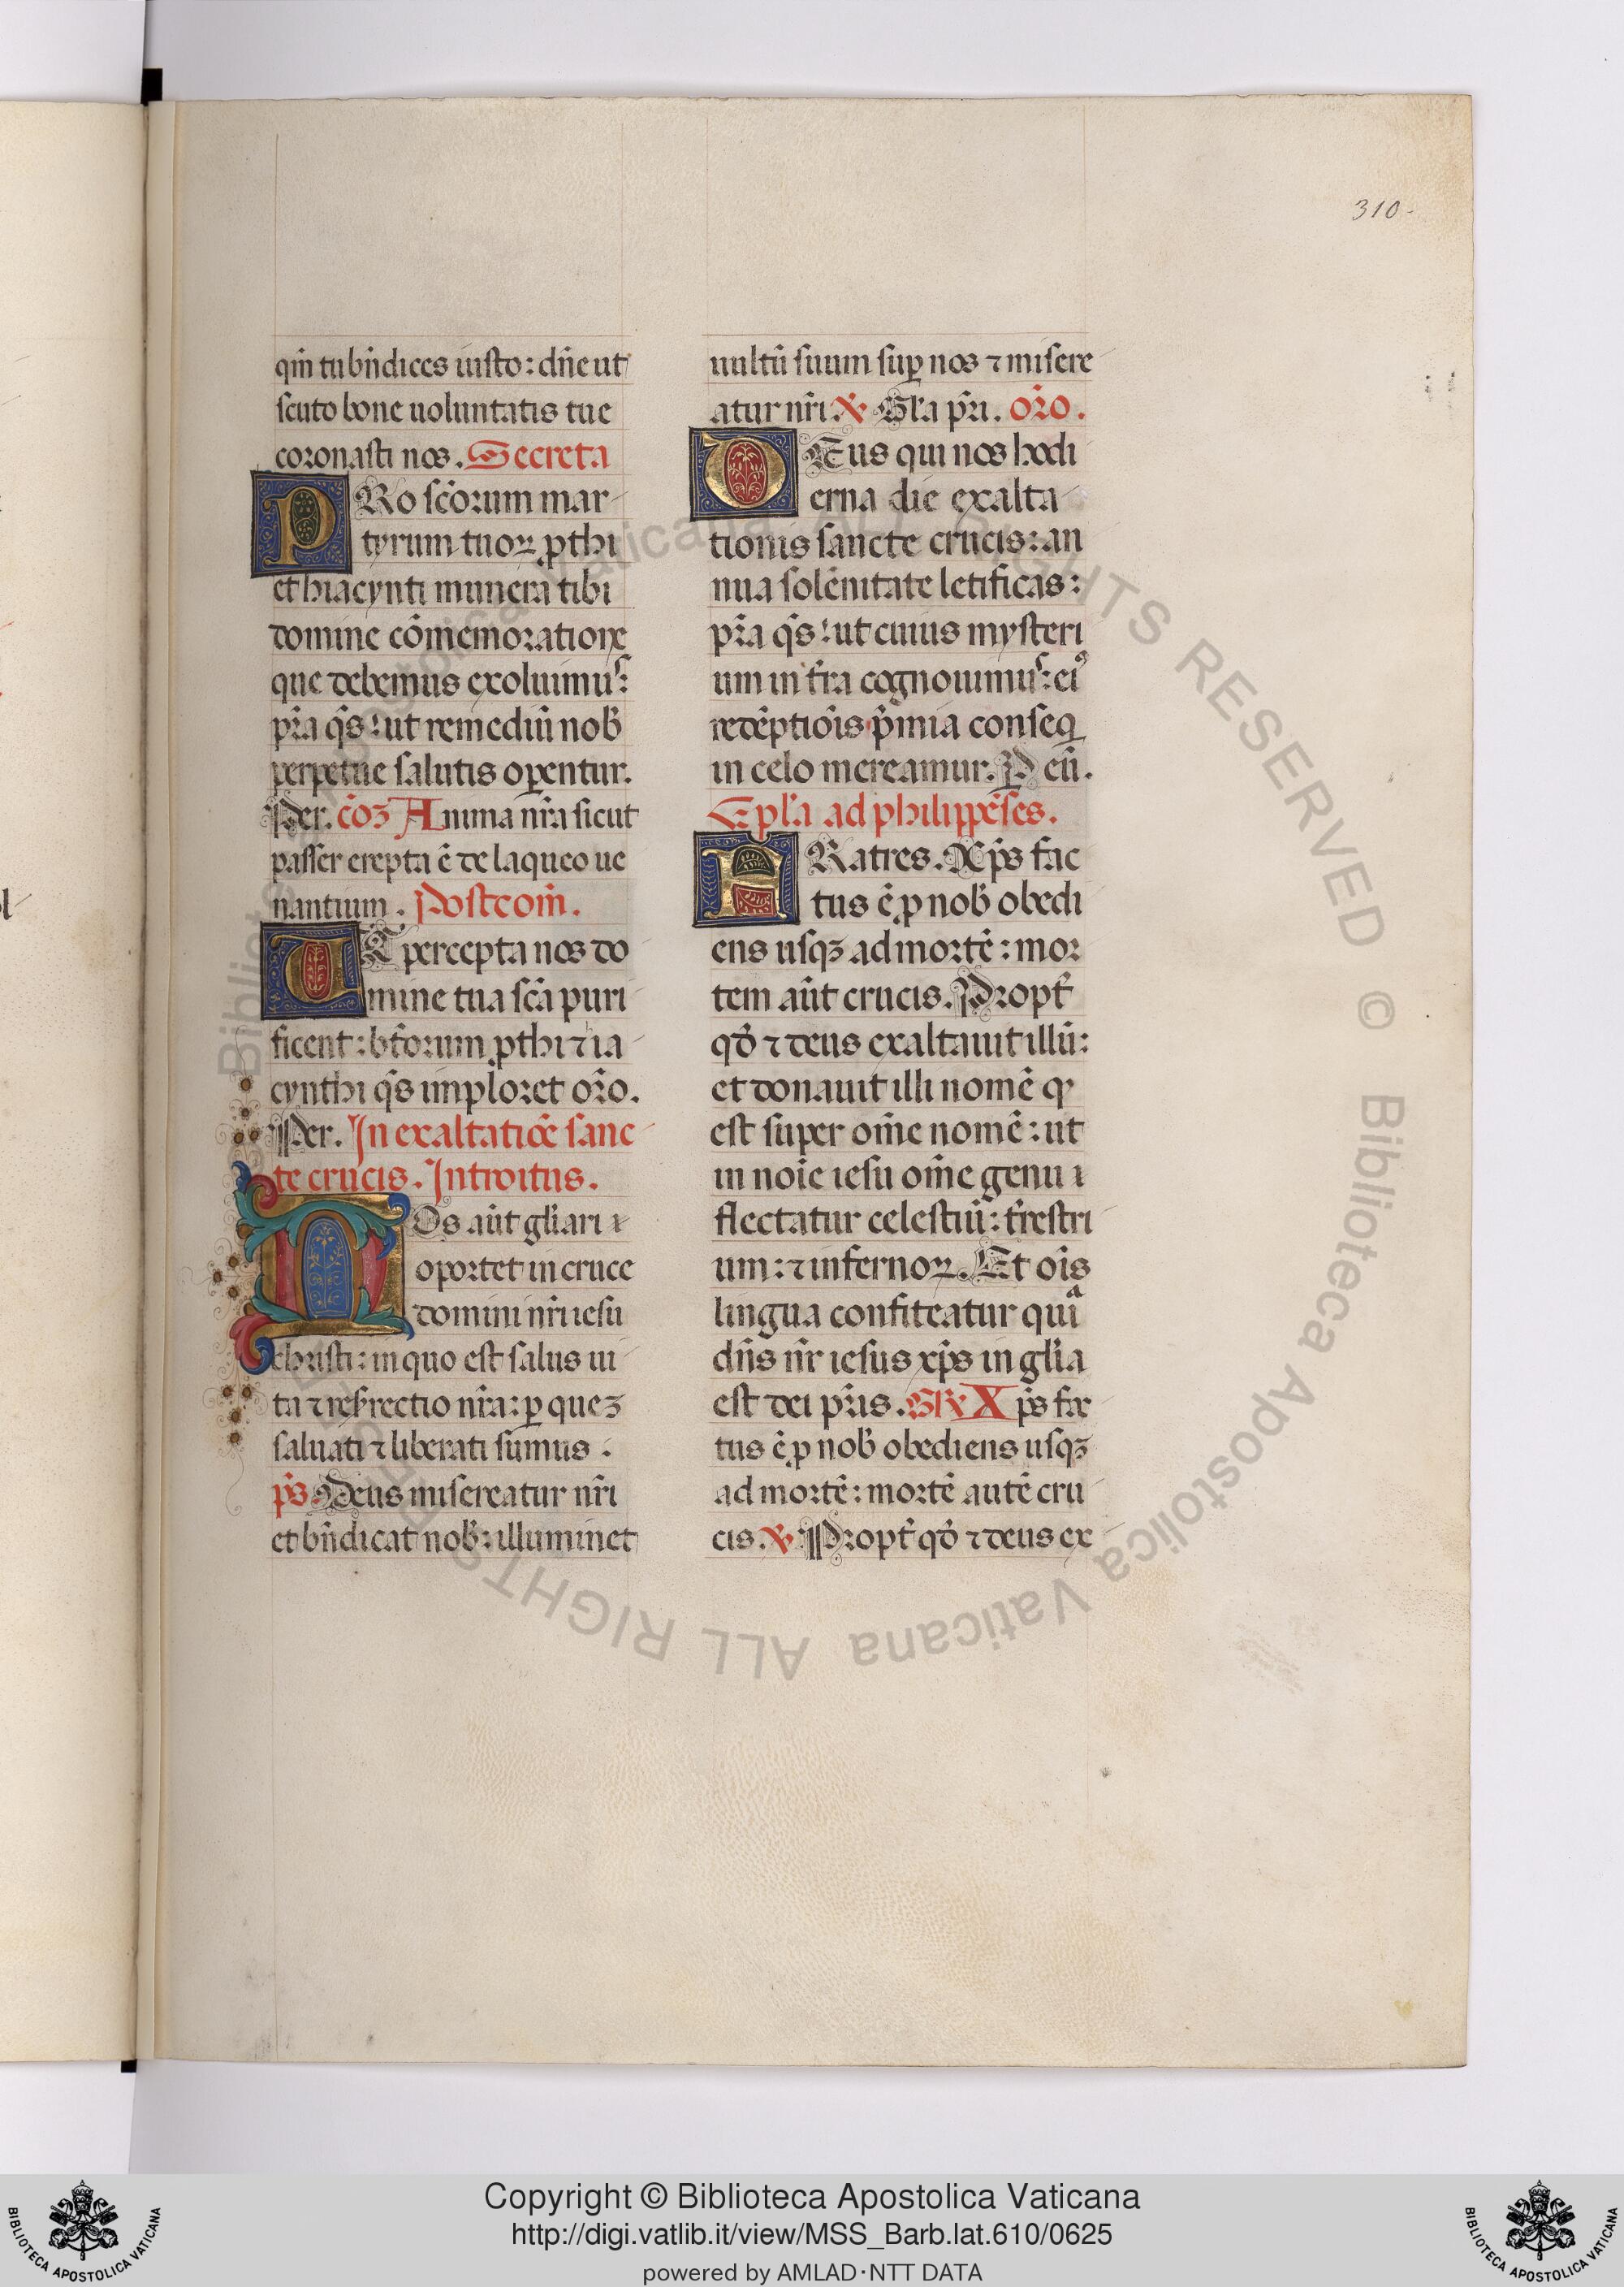 310.
qm̃ tu bñdices iusto: dñe ut
scuto bone uoluntatis tue
coronasti nos. Secreta
PRo scõrum mar
tyrum tuoꝝ ꝓthi
et hiacynti munera tibi
domine cõmemoratione
que debemus exoluimus:
pr̃a q̃s: ut remediũ nob̃
perpetue salutis oꝑentur.
Per. cõꝫ Anima nr̃a sicut
passer erepta ẽ de laqueo ue
nantium. Postcom̃.
UT percepta nos do
mine tua sc̃a puri
ficent: bt̃orum ꝓthi ⁊ ia
cynthi q̃s imploret or̃o.
Per. In exaltatiõe sanc
te crucis. Introitus.
NOs aũt gl̃iari ı
oportet in cruce
domini nr̃i iesu
christi: in quo est salus ui
ta ⁊ resr̃rectio nr̃a: ꝑ queꝫ
saluati ⁊ liberati sumus.
p̃s. Deus misereatur nr̃i
et bñdicat nob̃: illuminet
uultũ suum suꝑ nos ⁊ misere
atur nr̃i ℣ Gl̃a pr̃i. or̃o.
DEus qui nos hodi
erna die exalta
tionis sancte crucis: an
nua solẽnitate letificas:
pr̃a q̃s: ut cuius mysteri
um in tr̃a cognouimus: eiꝰ
redẽptiõis p̃mia conseq
in celo mereamur. P eũ.
Epl̃a ad philippẽses.
FRatres. Xp̃s fac
tus ẽ ꝓ nob̃ obedi
ens usqꝫ ad mortẽ: mor
tem aũt crucis. Propt̃
qõ ⁊ deus exaltauit illũ:
et donauit illi nomẽ qͥ
est super om̃e nomẽ: ut
in noĩe iesu om̃e genu ı
flectatur celestiũ: tr̃estri
um: ⁊ infernoꝝ. Et oĩs
lingua confiteatur quiᵃ
dñs nr̃ iesus xp̃s in gl̃ia
est dei pr̃is. Gr̃ Xp̃s fac
tus ẽ ꝓ nob̃ obediens usqꝫ
ad mortẽ: mortẽ autẽ cru
cis. ℣ Propt̃ qõ ⁊ deus ex
Biblioteca Apostolica Vaticana ALL RIGHTS RESERVED © Biblioteca Apostolica Vaticana ALL RIGHTS
Copyright © Biblioteca Apostolica Vaticana
http://digi.vatlib.it/view/MSS_Barb.lat.610/0625
powered by AMLAD·NTT DATA
BIBLIOTECA APOSTOLICA VATICANA
BIBLIOTECA APOSTOLICA VATICANA